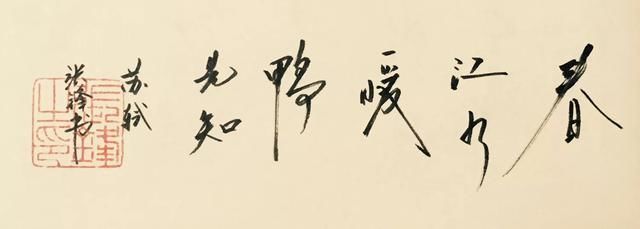 春
江水
暖
鸭
先知
苏轼
张 书